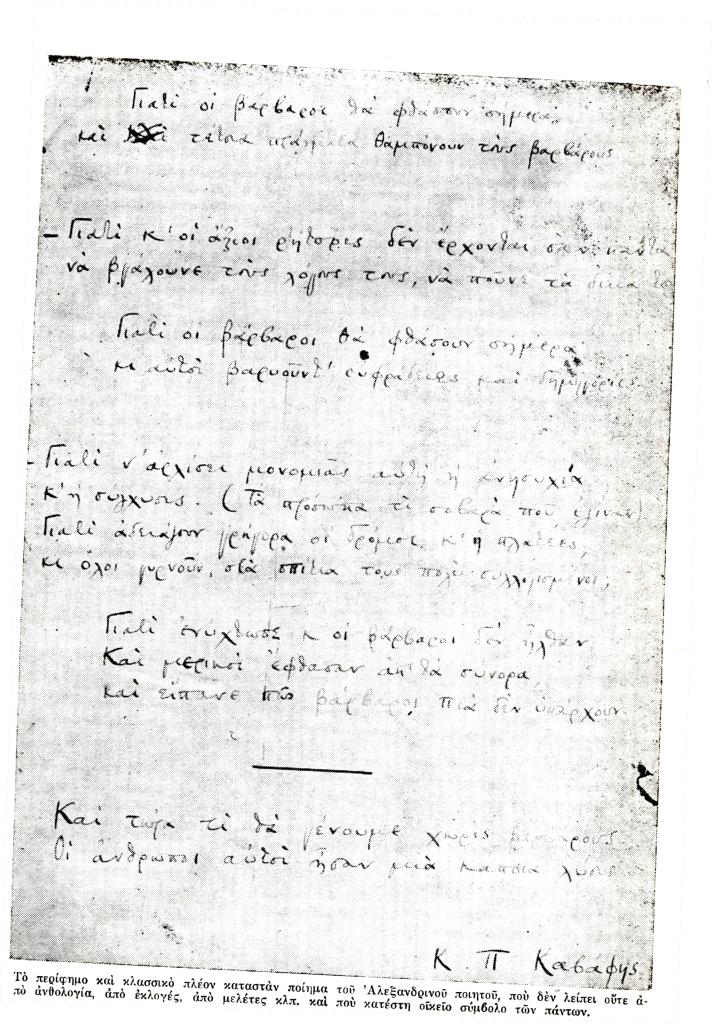 Γιατὶ οἱ βάρβαροι θὰ φθάσουν σήμερα,
καὶ τέτοια πράγματα θαμπόνουν τοὺς βαρβάρους
– Γιατὶ κ' οἱ ἄξιοι ρήτορες δὲν ἔρχονται σὰν πάντα
νὰ βγάλουνε τοὺς λόγους τους, νὰ ποῦνε τὰ δικά
Γιατὶ οἱ βάρβαροι θὰ φθάσουν σήμερα
κι αὐτοὶ βαρυοῦντ' εὐφράδειες καὶ δημηγορίες.
– Γιατὶ ν' ἀρχίσει μονομιᾶς αὐτὴ ἡ ἀνησυχία
κ' ἡ σύγχυσις. (Τὰ πρόσωπα τί σοβαρὰ ποὺ ἐγιναν)
Γιατὶ ἀδειάζουν γρήγορα οἱ δρόμοι κ' ἡ πλατέες,
κι ὅλοι γυρνοῦν στὰ σπίτια τους πολὺ συλλογισμένοι;
Γιατὶ ἐνύχτωσε κ οἱ βάρβαροι δὲν ἦλθαν
Καὶ μερικοὶ ἔφθασαν ἀπ' τὰ σύνορα,
καὶ εἴπανε πῶς βάρβαροι πιὰ δὲν ὑπάρχουν.
Καὶ τώρα τί θὰ γένουμε χωρὶς βαρβάρους
Οἱ ἄνθρωποι αὐτοὶ ἦσαν μιὰ κάποια λύσις
Κ Π Καβάφης
Τὸ περίφημο καὶ κλασσικὸ πλέον καταστὰν ποίημα τοῦ Ἀλεξανδρινοῦ ποιητοῦ, ποὺ δὲν λείπει οὔτε ἀ-
πὸ ἀνθολογία, ἀπὸ ἐκλογές, ἀπὸ μελέτες κλπ. καὶ ποὺ κατέστη οἰκεῖο σύμβολο τῶν πάντων.